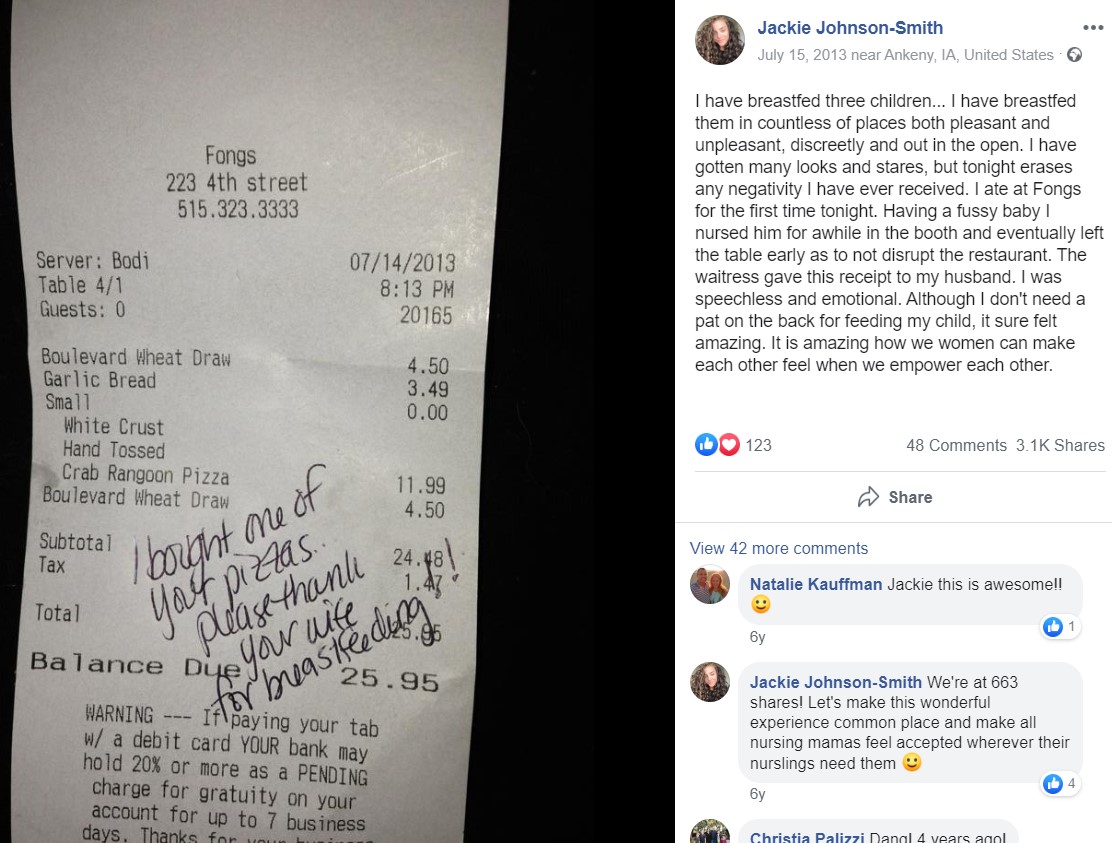 Fongs
223 4th street
515.323.3333
Server: Bodi 07/14/2013
Table 4/1 8:13 PM
Guests: 0 20165
Boulevard Wheat Draw 4.50
Garlic Bread 3.49
Small 0.00
White Crust
Hand Tossed
Crab Rangoon Pizza 11.99
Boulevard Wheat Draw 4.50
Subtotal 24.48
Tax 1.47
Total 25.95
Balance Due 25.95
I bought one of
your pizzas..
please thank
your wife
for breastfeeding!
WARNING --- If paying your tab
w/ a debit card YOUR bank may
hold 20% or more as a PENDING
charge for gratuity on your
account for up to 7 business
days. Thanks for your business
Jackie Johnson-Smith
July 15, 2013 near Ankeny, IA, United States ·
I have breastfed three children... I have breastfed
them in countless of places both pleasant and
unpleasant, discreetly and out in the open. I have
gotten many looks and stares, but tonight erases
any negativity I have ever received. I ate at Fongs
for the first time tonight. Having a fussy baby I
nursed him for awhile in the booth and eventually left
the table early as to not disrupt the restaurant. The
waitress gave this receipt to my husband. I was
speechless and emotional. Although I don't need a
pat on the back for feeding my child, it sure felt
amazing. It is amazing how we women can make
each other feel when we empower each other.
123 48 Comments 3.1K Shares
Share
View 42 more comments
Natalie Kauffman Jackie this is awesome!!
🙂
1
6y
Jackie Johnson-Smith We're at 663
shares! Let's make this wonderful
experience common place and make all
nursing mamas feel accepted wherever their
nurslings need them 🙂
4
6y
Christia Palizzi Dang! 4 years ago!